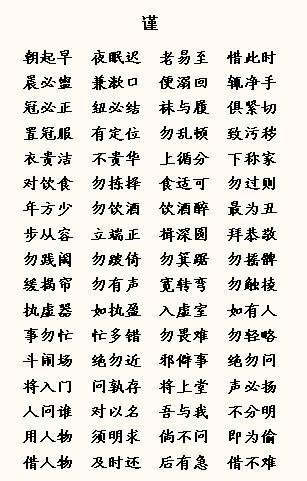 谨
朝起早 夜眠迟 老易至 惜此时
晨必盥 兼漱口 便溺回 辄净手
冠必正 纽必结 袜与履 俱紧切
置冠服 有定位 勿乱顿 致污秽
衣贵洁 不贵华 上循分 下称家
对饮食 勿拣择 食适可 勿过则
年方少 勿饮酒 饮酒醉 最为丑
步从容 立端正 揖深圆 拜恭敬
勿践阈 勿跛倚 勿箕踞 勿摇髀
缓揭帘 勿有声 宽转弯 勿触棱
执虚器 如执盈 入虚室 如有人
事勿忙 忙多错 勿畏难 勿轻略
斗闹场 绝勿近 邪僻事 绝勿问
将入门 问孰存 将上堂 声必扬
人问谁 对以名 吾与我 不分明
用人物 须明求 倘不问 即为偷
借人物 及时还 后有急 借不难